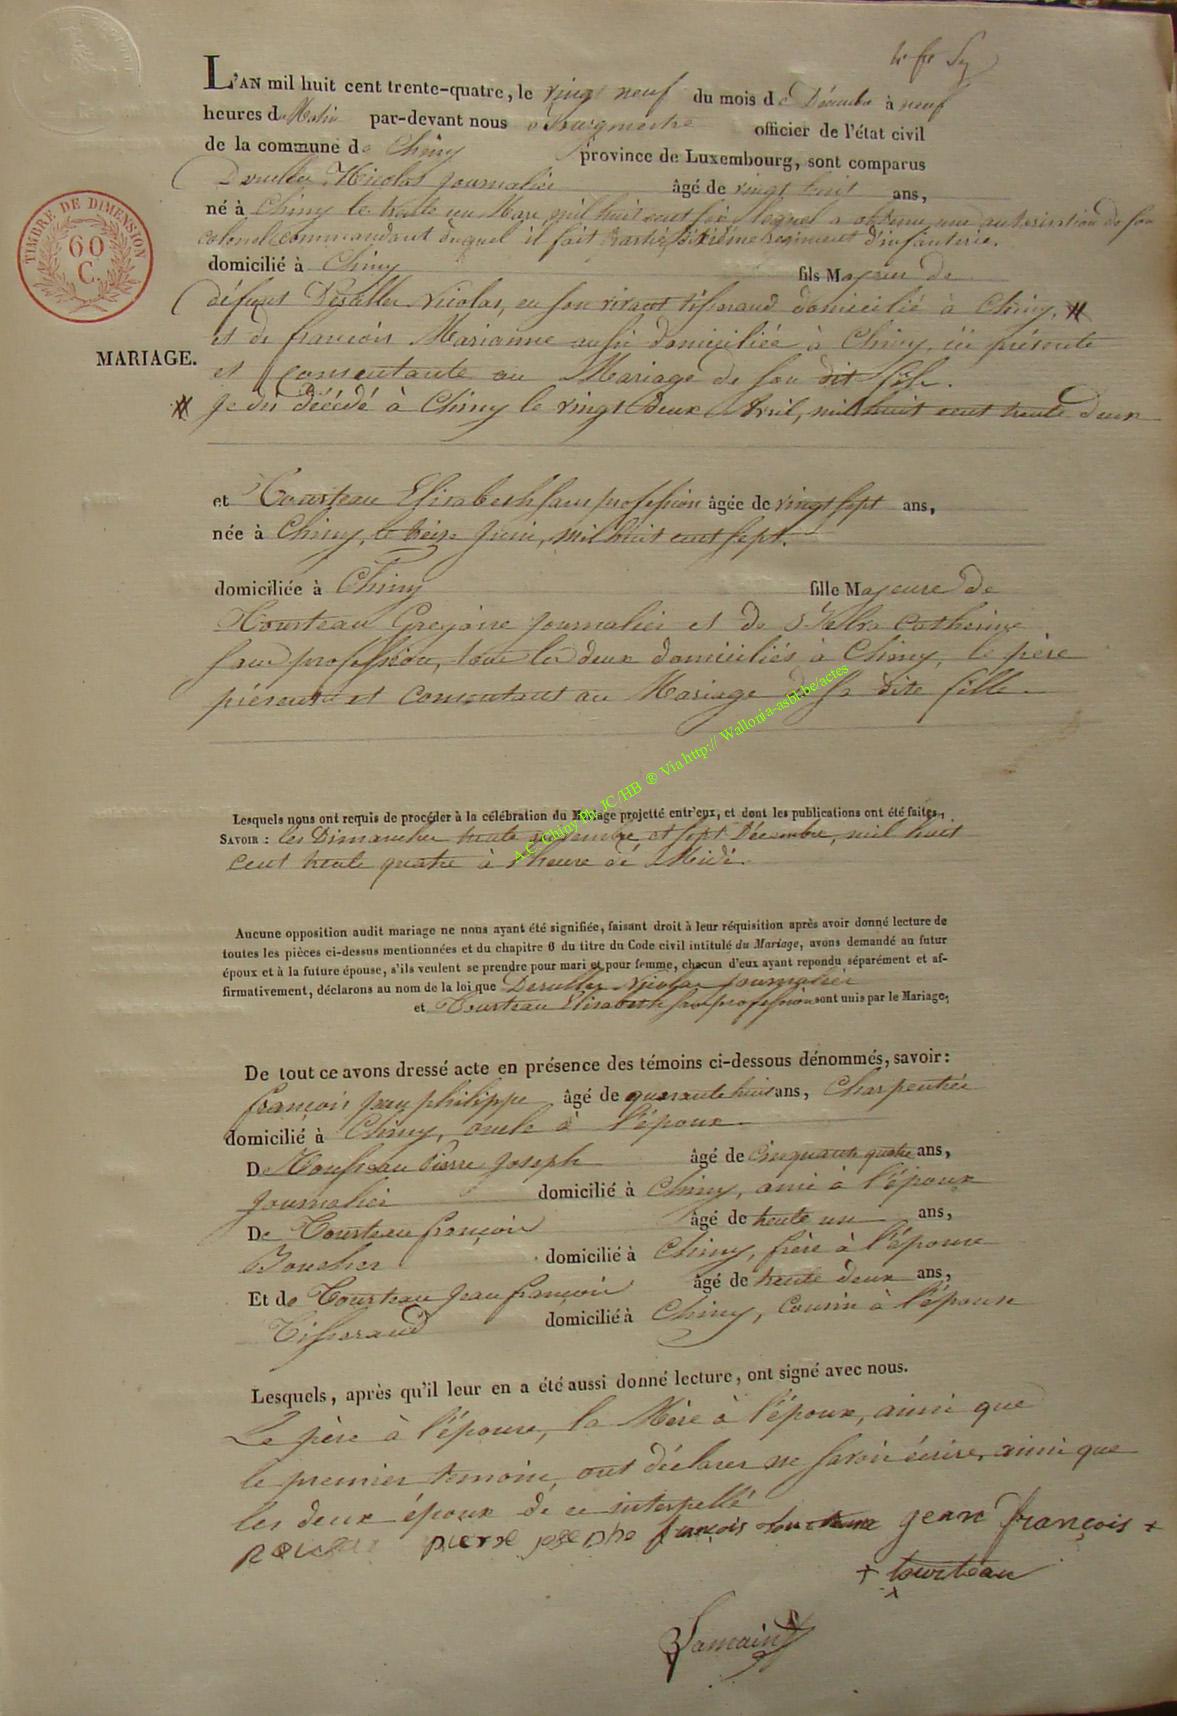 L'AN mil huit cent trente-quatre, le vingt neuf du mois de Décembre à neuf
heures du Matin par-devant nous Bourgmestre officier de l'état civil
de la commune de Chiny province de Luxembourg, sont comparus
Nicolas journalier âgé de vingt huit ans,
né à Chiny le trente un Mars mil huit cent six lequel a obtenu une autorisation de son
colonel commandant duquel il fait partie régiment d'infanterie.
domicilié à Chiny fils Majeur de
défunt Nicolas, en son vivant tisserand domicilié à Chiny, #
et de françois Marianne aussi domiciliée à Chiny, ici présente
et consentante au Mariage de son dit fils.
MARIAGE.
TIMBRE DE DIMENSION
60
C.
# décédé à Chiny le vingt deux Avril, mil huit cent trente deux
et Tourteau Elisabeth sans profession âgée de vingt sept ans,
née à Chiny, le treize Juin, mil huit cent sept.
domiciliée à Chiny fille Majeure de
Tourteau Grégoire journalier et de Catherine
sans profession, tous les deux domiciliés à Chiny, le père
présent et consentant au Mariage de sa dite fille
A.C. Chiny Ph. JC/HB ® Via http:// Wallonia-asbl.be/actes
Lesquels nous ont requis de procéder à la célébration du Mariage projetté entr'eux, et dont les publications ont été faites,
SAVOIR : les Dimanches trente novembre, et sept Décembre, mil huit
cent trente quatre à l'heure de Midi.
Aucune opposition audit mariage ne nous ayant été signifiée, faisant droit à leur réquisition après avoir donné lecture de
toutes les pièces ci-dessus mentionnées et du chapitre 6 du titre du Code civil intitulé du Mariage, avons demandé au futur
époux et à la future épouse, s'ils veulent se prendre pour mari et pour femme, chacun d'eux ayant repondu séparément et af-
firmativement, déclarons au nom de la loi que Nicolas journalier
et Tourteau Elisabeth sans profession sont unis par le Mariage,
De tout ce avons dressé acte en présence des témoins ci-dessous dénommés, savoir :
françois jean philippe âgé de quarante huit ans, Charpentier
domicilié à Chiny, oncle à l'époux.
De Pierre Joseph âgé de cinquante quatre ans,
journalier domicilié à Chiny, ami à l'époux
De Tourteau françois âgé de trente un ans,
Boucher domicilié à Chiny, frère à l'épouse
Et de Tourteau Jean françois âgé de trente deux ans,
Tisserand domicilié à Chiny, Cousin à l'épouse
Lesquels, après qu'il leur en a été aussi donné lecture, ont signé avec nous.
Le père à l'épouse, la Mère à l'époux, ainsi que
le premier témoin, ont déclarer ne savoir écrire, ainsi que
les deux époux de ce interpellé
pierre josephe françois tourteau jean françois +
+ tourteau